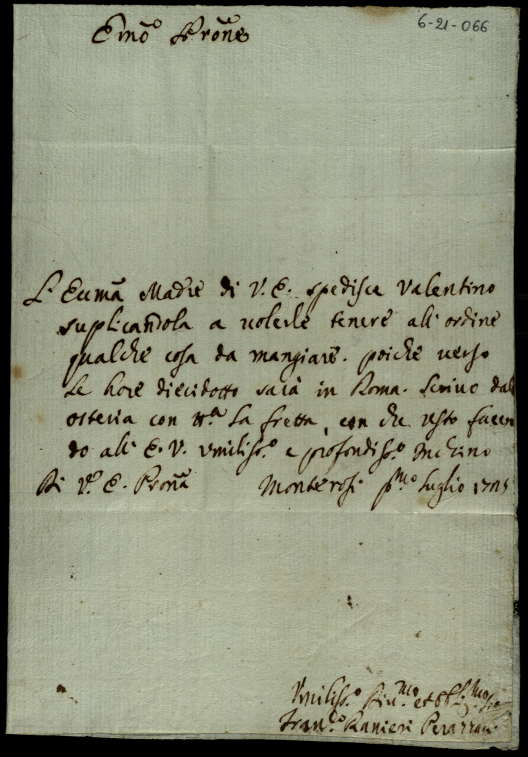 6-21-066
Emõ Prone
L'Eccma Madre di V. E. spedisce Valentino
suplicandola a volerle tenere all'ordine
qualche cosa da mangiare. poiche verso
le hore diecidotto sarà in Roma. Scrivo dall
osteria con tta la fretta, con che resto facen
do all' E. V. vmilisso. e profondisso. Inchino
Di Va. E. Prona Monterosi pmo Luglio
Vmilisso. Divmo et
Franco Ranieri